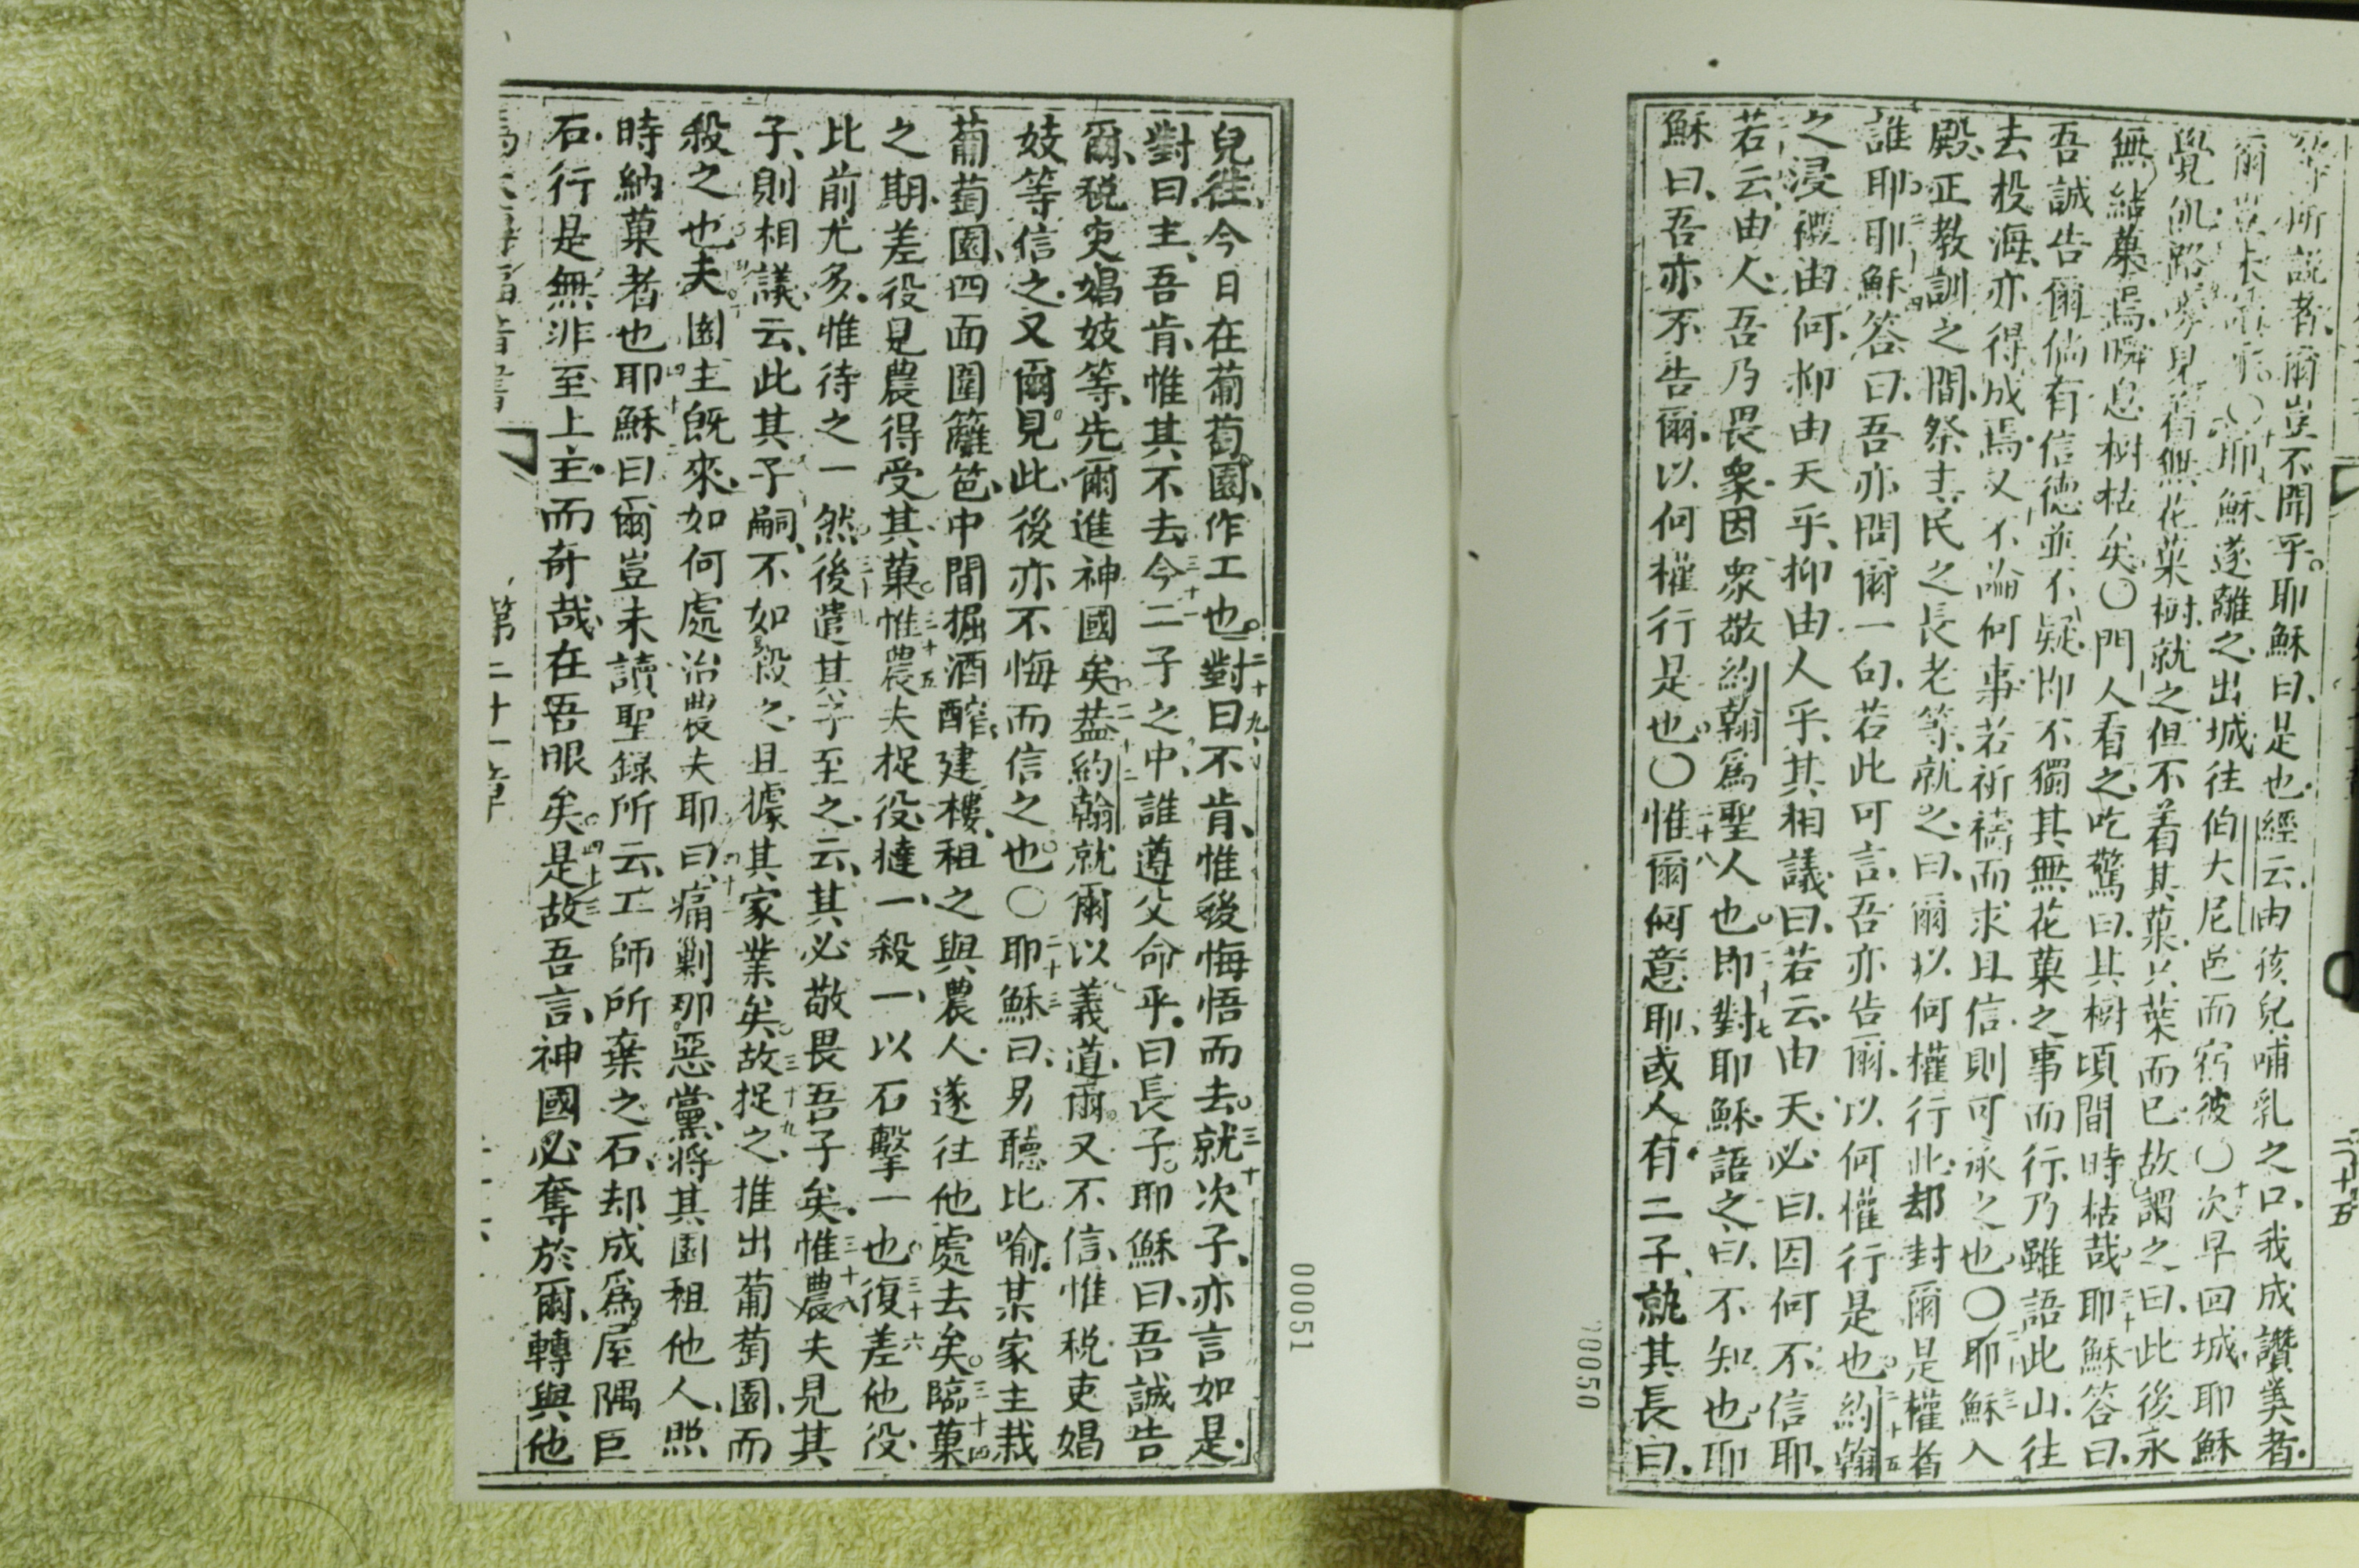 等所說者爾豈不聞乎耶穌曰是也經云由孩兒哺乳之口我成讚美者
爾豈未〇耶穌遂離之出城往伯大尼邑而宿彼〇次早回城耶穌
覺飢路旁見有無花菓樹就之但不着其菓只葉而已故謂之曰此後永
無結菓焉瞬息樹枯矣〇門人看之吃驚曰其樹頃間時枯哉耶穌答曰
吾誠告爾倘有信德並不疑即不獨其無花菓之事而行乃雖語此山往
去投海亦得成焉又不論何事若祈禱而求且信則可承之也〇耶穌入
殿正教訓之間祭主民之長老等就之曰爾以何權行此却封爾是權者
誰耶耶穌答曰吾亦問爾一句若此可言吾亦告爾以何權行是也約翰
之浸禮由何抑由天乎抑由人乎其相議曰若云由天必曰因何不信耶
若云由人吾乃畏衆因衆敬約翰爲聖人也即對耶穌語之曰不知也耶
穌曰吾亦不告爾以何權行是也〇惟爾何意耶或人有二子就其長曰
二十五
00050
兒往今日在葡萄園作工也對曰不肯惟後悔悟而去就次子亦言如是
對曰主吾肯惟其不去今二子之中誰遵父命乎曰長子耶穌曰吾誠告
爾税吏娼妓等先爾進神國矣葢約翰就爾以義道爾又不信惟税吏娼
妓等信之又爾見此後亦不悔而信之也〇耶穌曰另聽比喻某家主栽
葡萄園四面圍籬笆中間掘酒醡建樓租之與農人遂往他處去矣臨菓
之期差役見農得受其菓惟農夫捉役撻一殺一以石擊一也復差他役
比前尤多惟待之一然後遣其子至之云其必敬畏吾子矣惟農夫見其
子則相議云此其子嗣不如殺之且據其家業矣故捉之推出葡萄園而
殺之也夫園主既來如何處治農夫耶曰痛剿那惡黨將其園租他人照
時納菓者也耶穌曰爾豈未讀聖録所云工師所棄之石却成爲屋隅巨
石行是無非至上主而奇哉在吾眼矣是故吾言神國必奪於爾轉與他
第二十一章
00051